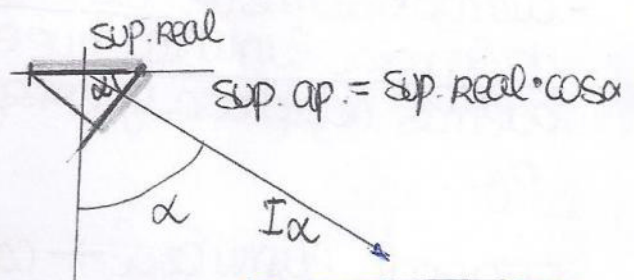 sup.real
α
sup. ap. = sup. real · cosα
α
Iα